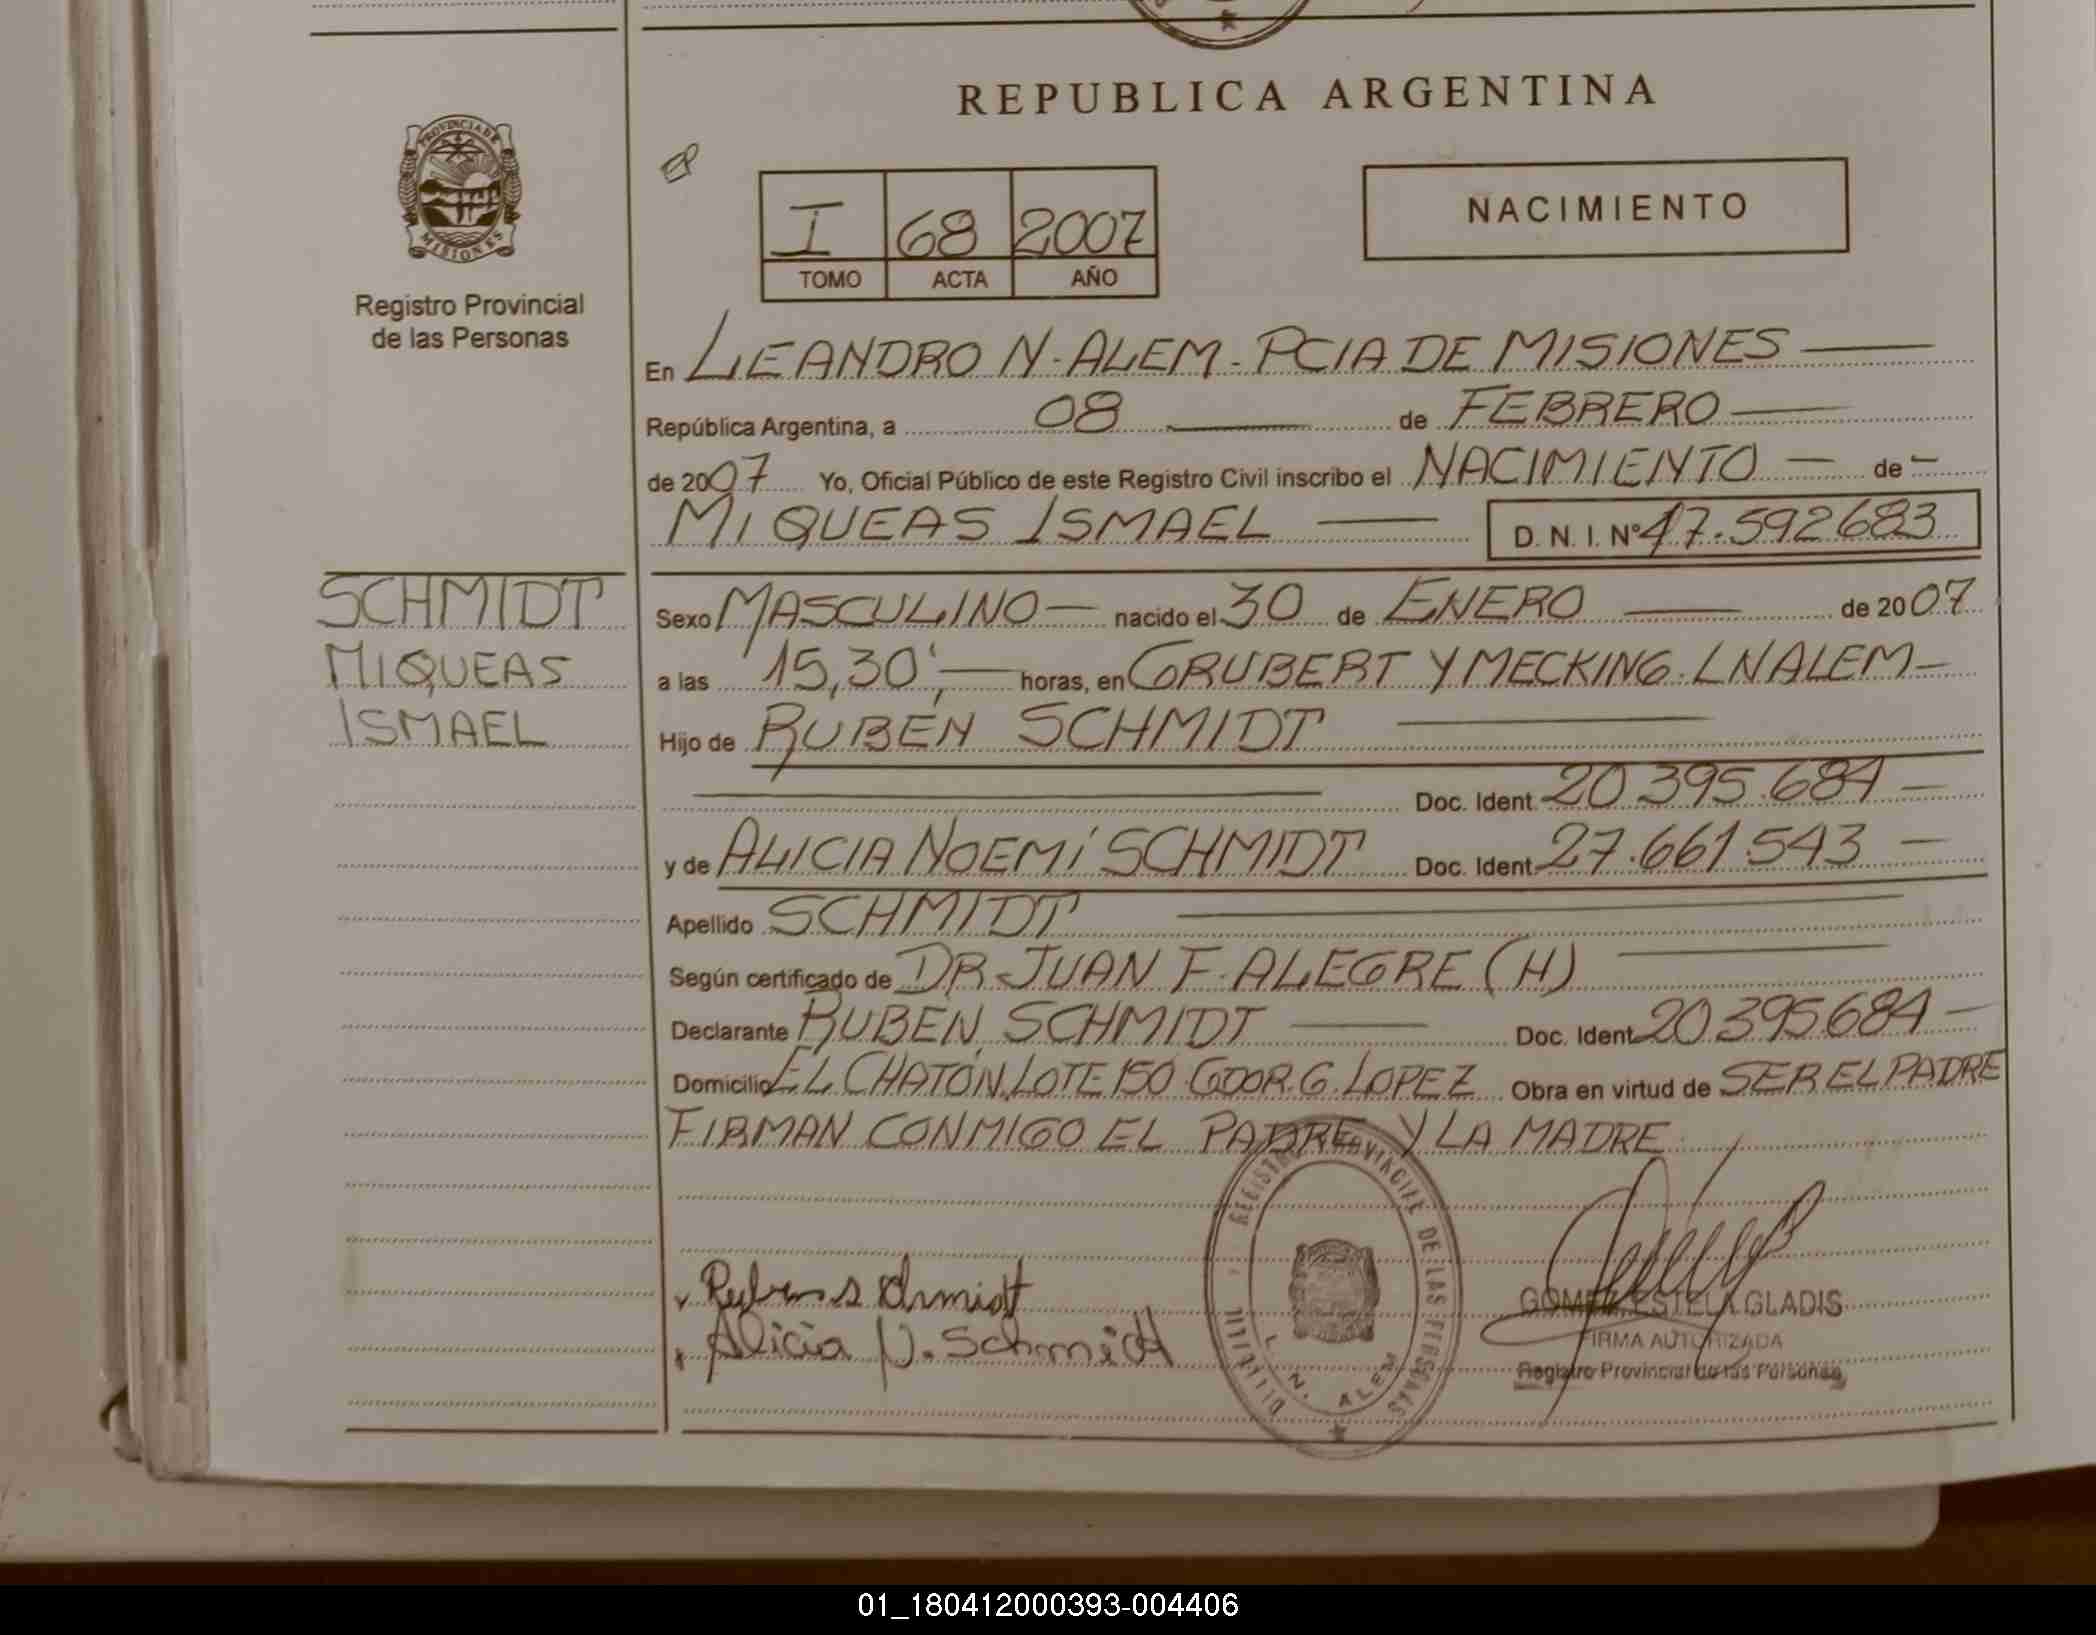 REPUBLICA ARGENTINA
PROVINCIA DE
MISIONES
Registro Provincial
de las Personas
I 68 2007
TOMO ACTA AÑO
NACIMIENTO
En LEANDRO N. ALEM - PCIA DE MISIONES
República Argentina, a 08 de FEBRERO
de 2007 Yo, Oficial Público de este Registro Civil inscribo el NACIMIENTO de
MIQUEAS ISMAEL D. N. I. Nº 47.592683
SCHMIDT
MIQUEAS
ISMAEL
Sexo MASCULINO nacido el 30 de ENERO de 2007
a las 15,30', horas, en GRUBERT Y MECKING. L N ALEM
Hijo de RUBÉN SCHMIDT
Doc. Ident. 20.395.684
y de ALICIA NOEMÍ SCHMIDT Doc. Ident. 27.661.543
Apellido SCHMIDT
Según certificado de DR. JUAN F. ALEGRE (H)
Declarante RUBEN SCHMIDT Doc. Ident. 20395684
Domicilio EL CHATÓN. LOTE 150. GDOR. G. LOPEZ Obra en virtud de SER EL PADRE
FIRMAN CONMIGO EL PADRE Y LA MADRE
Ruben Schmidt
Alicia N. Schmidt
REGISTRO PROVINCIAL DE LAS PERSONAS
L. N. ALEM
GOMEZ ESTELA GLADIS
FIRMA AUTORIZADA
Registro Provincial de las Personas
01_180412000393-004406